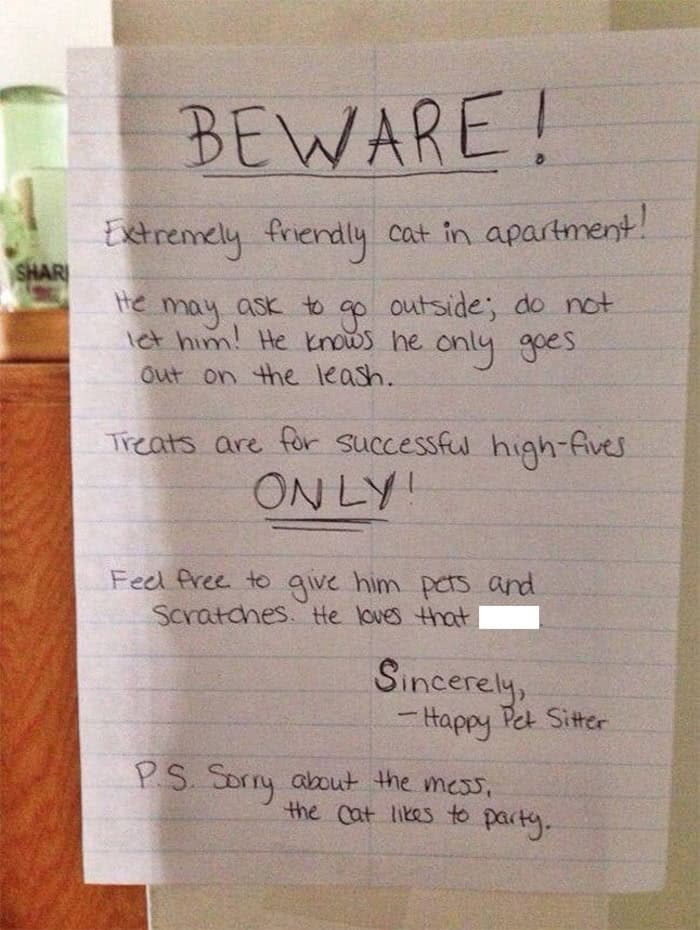 BEWARE!
Extremely friendly cat in apartment!
SHAR
He may ask to go outside; do not
let him! He knows he only goes
out on the leash.
Treats are for successful high-fives
ONLY!
Feel free to give him pets and
scratches. He loves that
Sincerely,
- Happy Pet Sitter
P.S. Sorry about the mess,
the cat likes to party.